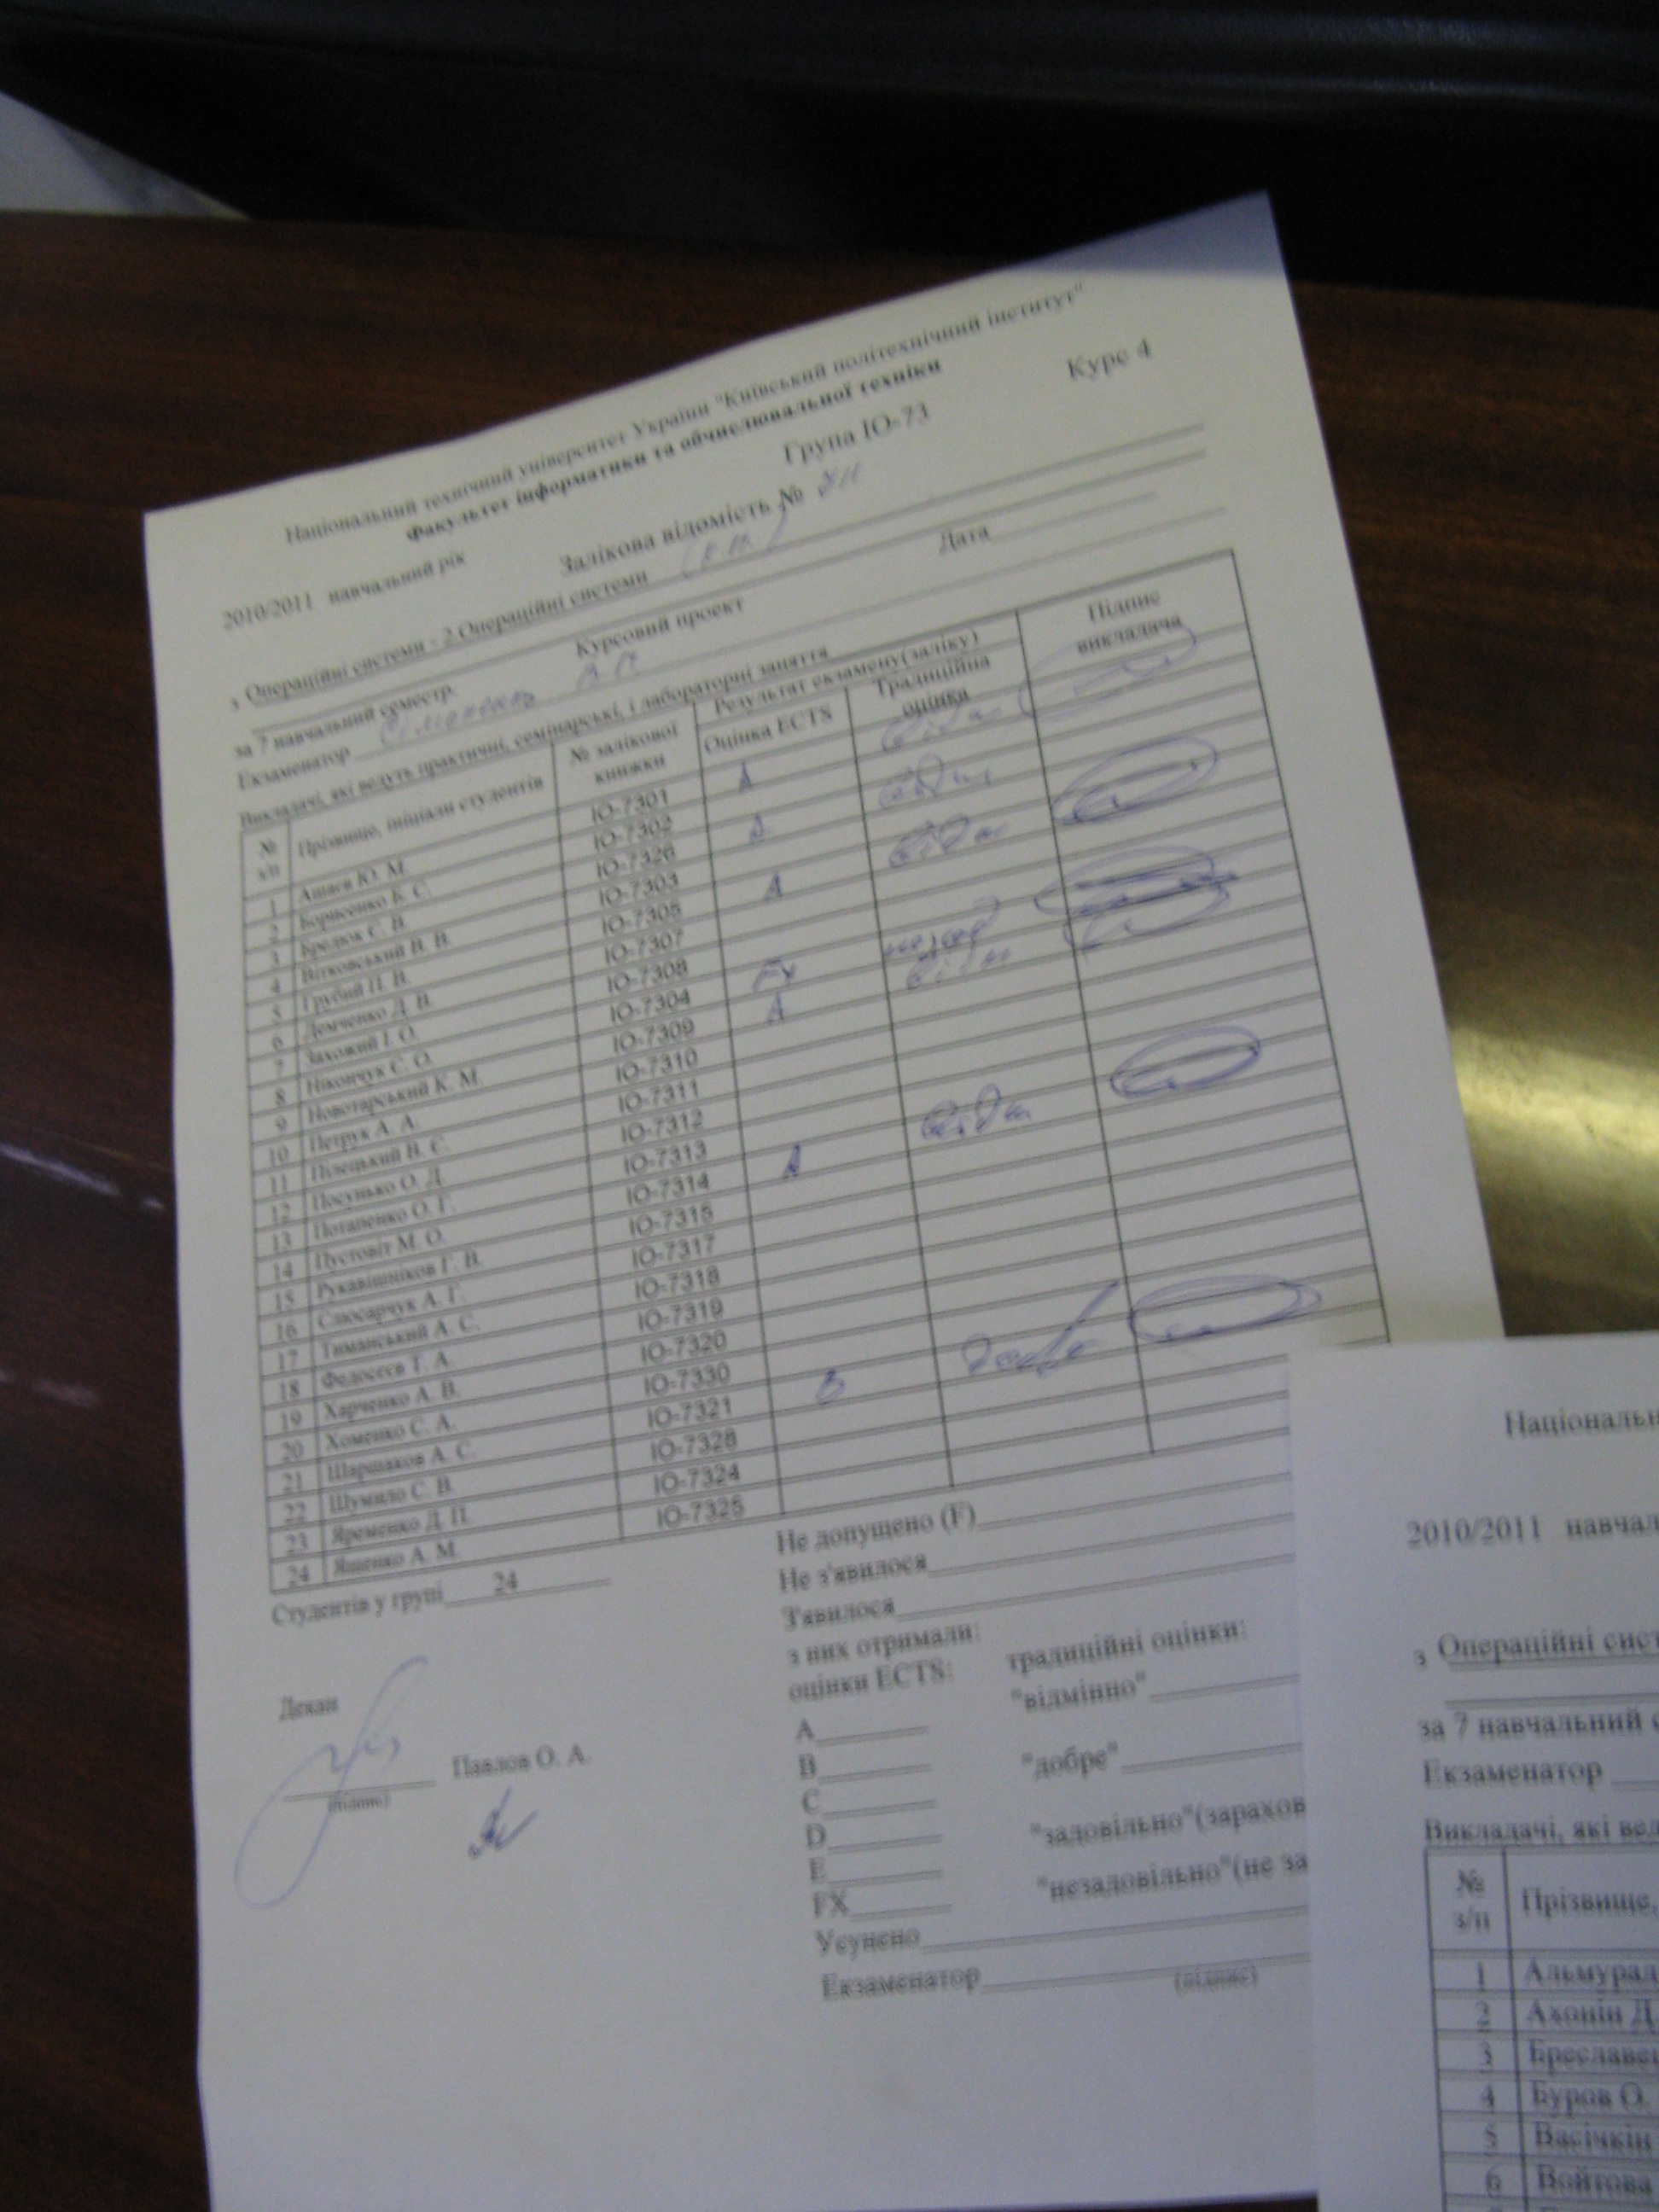 Національний технічний університет України "Київський політехнічний інститут"
Факультет інформатики та обчислювальної техніки
Група ІО-73 Курс 4
2010/2011 навчальний рік
Залікова відомість №
з Операційні системи - 2 Операційні системи
Курсовий проект Дата
за 7 навчальний семестр.
Екзаменатор
Викладачі, які ведуть практичні, семінарські, і лабораторні заняття
№ з/п Прізвище, ініціали студентів № залікової книжки Результат екзамену(заліку) Оцінка ECTS Традиційна оцінка Підпис викладача
1 Ашаєв Ю. М. ІО-7301 A
2 Борисенко К. С. ІО-7302
3 Бредюк Є. В. ІО-7326
4 Вітковський В. В. ІО-7303
5 Грубий П. В. ІО-7305
6 Демченко Д. В. ІО-7307
7 Захожий І. О. ІО-7308
8 Нікончук Є. О. ІО-7304
9 Новотарський К. М. ІО-7309
10 Петрук А. А. ІО-7310
11 Пілецький В. Є. ІО-7311
12 Посунько О. Д. ІО-7312
13 Потапенко О. Г. ІО-7313
14 Пустовіт М. О. ІО-7314
15 Рукавішніков Г. В. ІО-7315
16 Слюсарчук А. Г. ІО-7317
17 Тиманський А. С. ІО-7318
18 Федосєєв Т. А. ІО-7319
19 Харченко А. В. ІО-7320
20 Хоменко С. А. ІО-7330
21 Шаршаков А. С. ІО-7321
22 Шумило С. В. ІО-7328
23 Яременко Д. П. ІО-7324
24 Яценко А. М. ІО-7325
Студентів у групі 24
Не допущено (F)
Не з'явилося
З'явилося
з них отримали:
оцінки ECTS: традиційні оцінки:
A "відмінно"
B "добре"
C
D "задовільно"(зарахов
E
FX "незадовільно"(не за
Усунено
Екзаменатор
(підпис)
Декан
Павлов О. А.
(підпис)
Національн
2010/2011 навчал
з Операційні сист
за 7 навчальний с
Екзаменатор
Викладачі, які вед
№ з/п Прізвище,
1 Альмурад
2 Ахонін Д.
3 Бреславец
4 Буров О.
5 Васічкін
6 Войтова